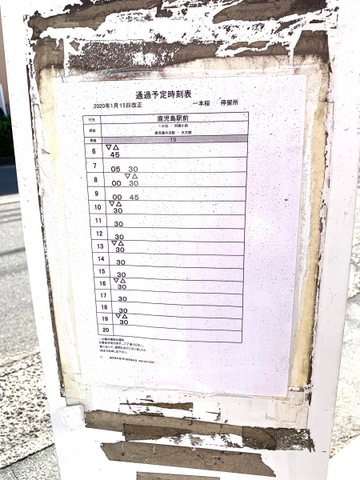 通過予定時刻表
2020年1月15日改正 一本桜 停留所
行先 鹿児島駅前
19
6 ▽△
45
7 05 30
8 ▽△
00 30
9 00 45
10 ▽△
30
11 30
12 30
13 ▽△
30
14 30
15 30
16 ▽△
30
17 30
18 30
19 ▽△
30
20